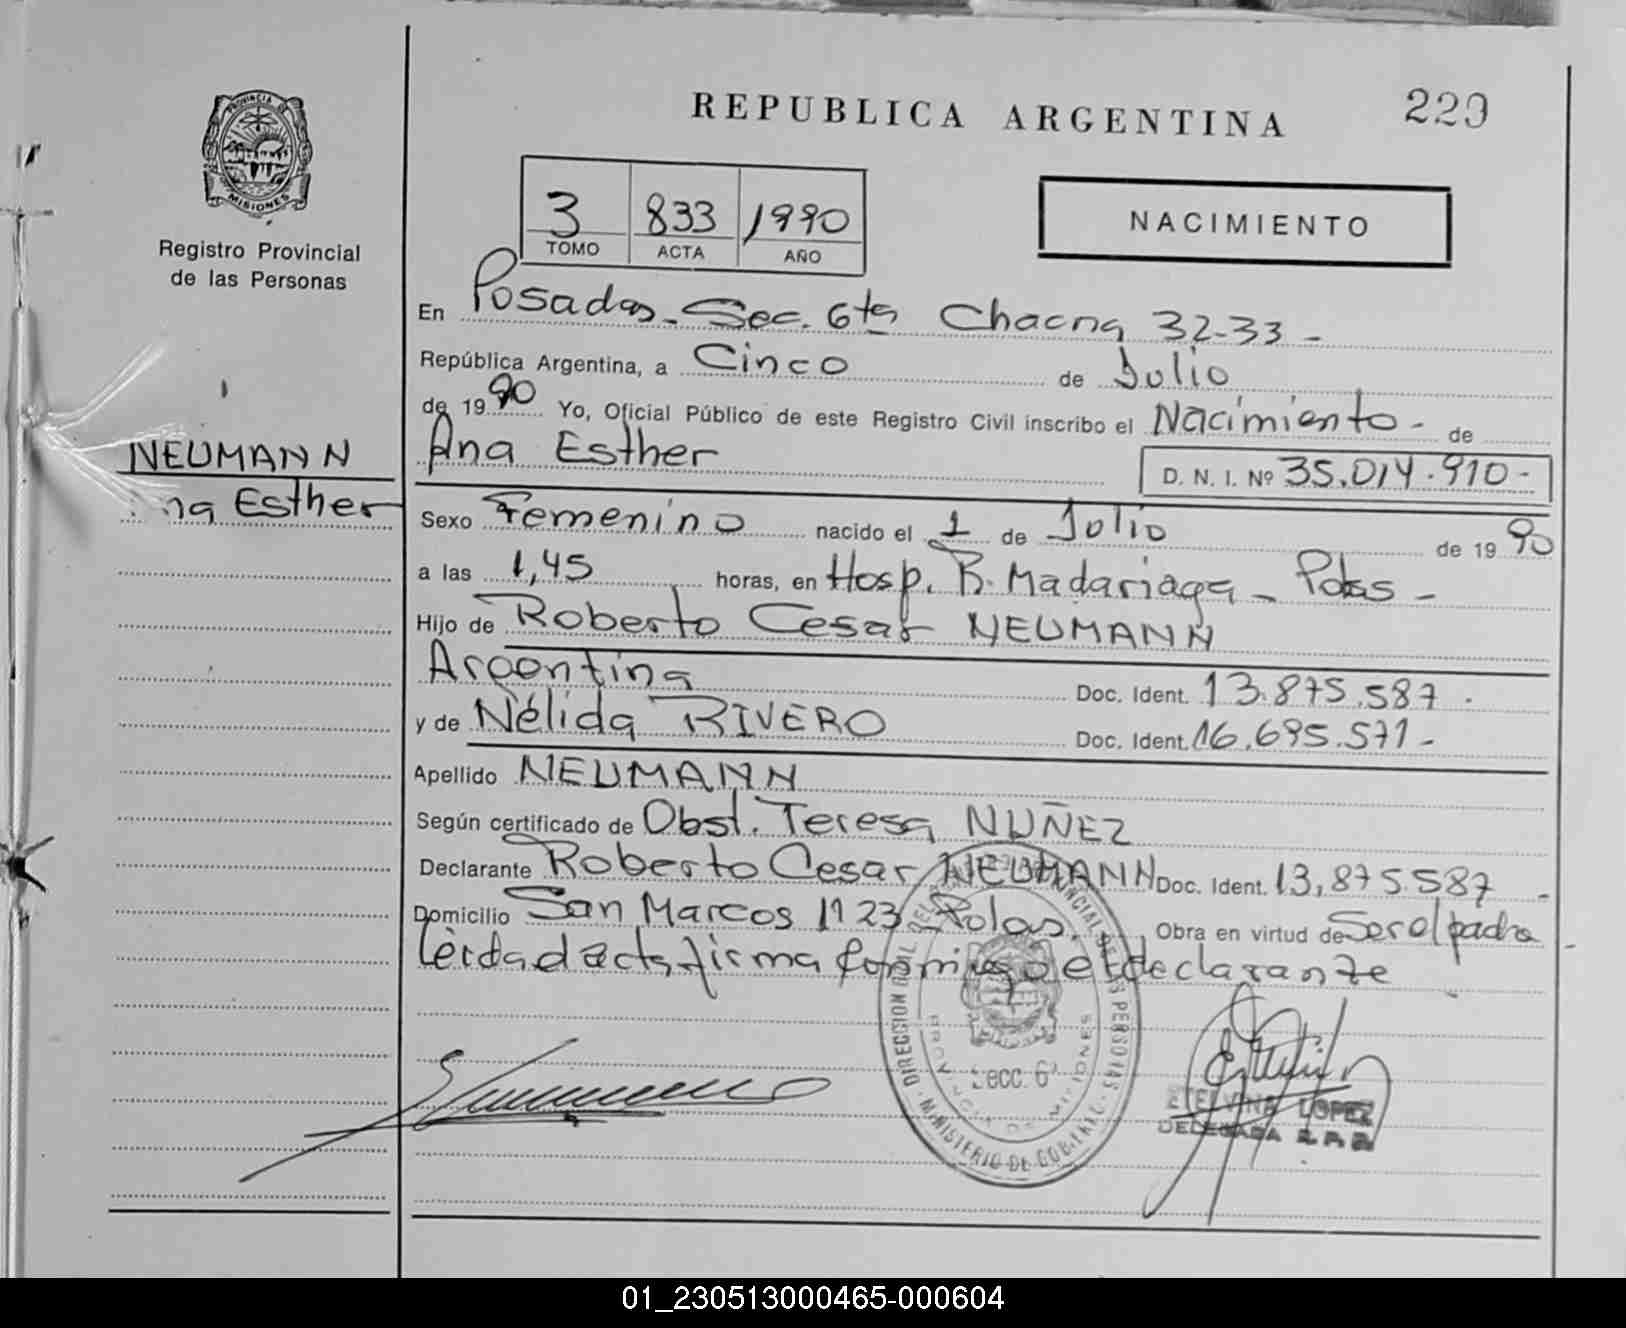 REPUBLICA ARGENTINA
229
PROVINCIA DE
MISIONES
Registro Provincial
de las Personas
3 833 1990
TOMO ACTA AÑO
NACIMIENTO
En Posadas - Sec. 6ta Chacra 32-33 -
República Argentina, a Cinco de Julio
de 1990 Yo, Oficial Público de este Registro Civil inscribo el Nacimiento - de
Ana Esther D. N. I. Nº 35.014.910-
NEUMANN
Esther
Sexo Femenino nacido el 1 de Julio de 1990
a las 1,45 horas, en Hosp. R. Madariaga - Pdas -
Hijo de Roberto Cesar NEUMANN
Argentina Doc. Ident. 13.875.587.
y de Nélida RIVERO Doc. Ident. 16.695.571-
Apellido NEUMANN
Según certificado de Obst. Teresa NUÑEZ
Declarante Roberto Cesar NEUMANN Doc. Ident. 13,875.587 -
Domicilio San Marcos 1123 Obra en virtud de Ser el padre -
Leída el acta firma conmigo el declarante
DIRECCION GRAL. DEL REG. PROVINCIAL DE LAS PERSONAS
MINISTERIO DE GOBIERNO
PROVINCIA DE MISIONES
Secc. 6ª
ETELVINA LOPEZ
DELEGADA
01_230513000465-000604